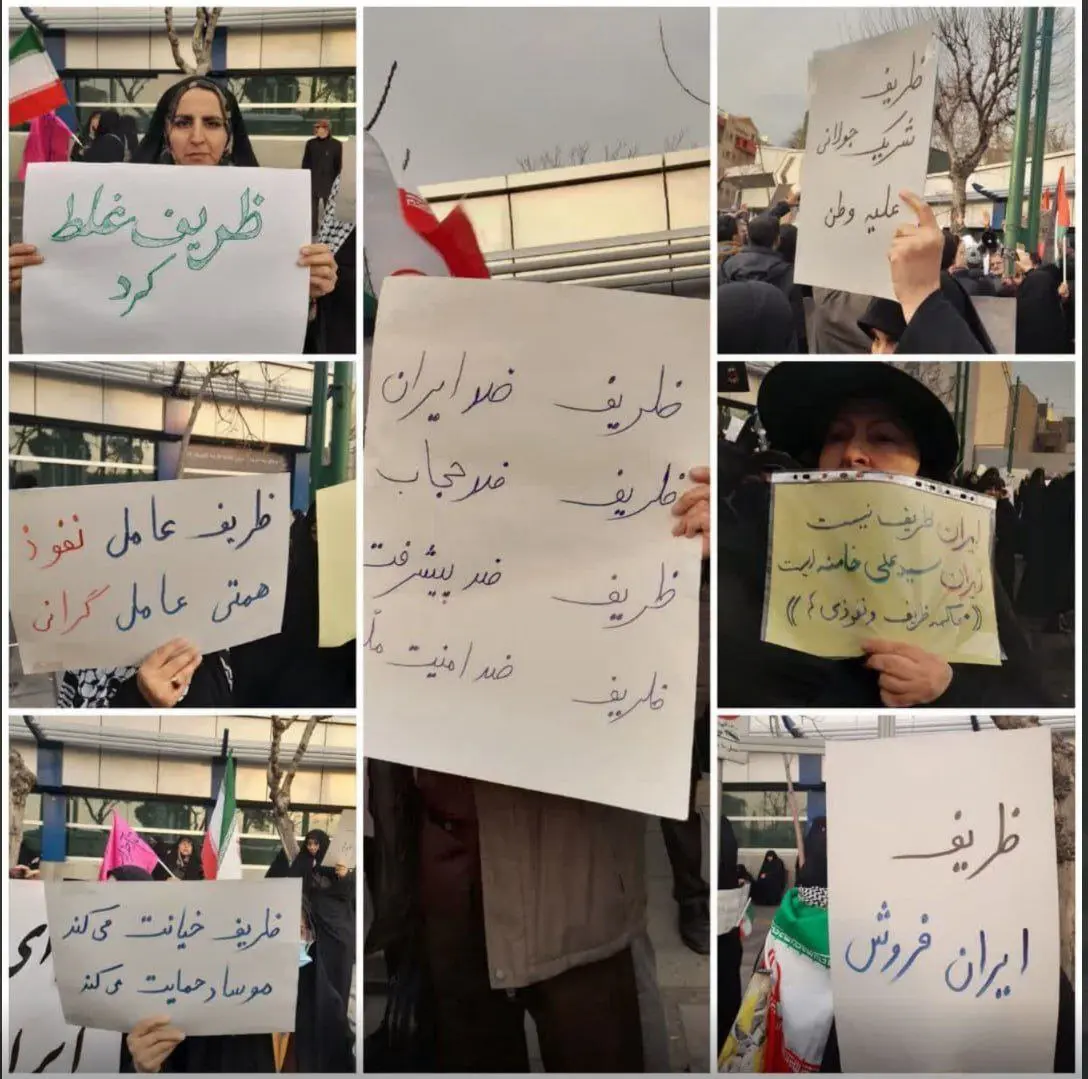 ظریف غلط
کرد
ظریف
شریک جولانی
علیه وطن
ظریف ضد ایران
ظریف ضد حجاب
ظریف ضد پیشرفت
ظریف ضد امنیت
ظریف عامل نفوذ
همتی عامل گرانی
ایران ظریف نیست
ایران سید علی خامنه ایست
ظریف و نفوذی
ظریف خیانت می‌کند
موساد حمایت می‌کند
ظریف
ایران فروش